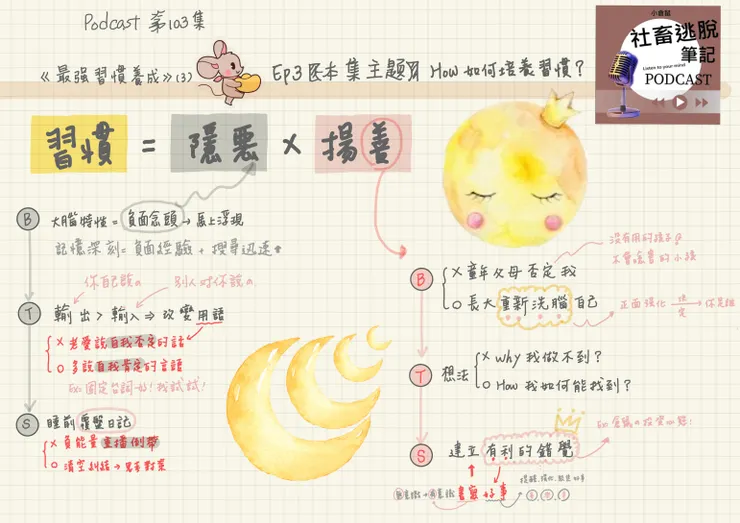 Podcast 第103集
《最强習慣養成》(3)
Ep3 区本集主題 How 如何培養習慣?
小倉鼠
社畜逃脫
筆記
Listen to your mind
PODCAST
習慣 = 隱惡 × 揚善
B 大腦特性 = 負面念頭 → 馬上浮現
記憶深刻 = 負面經驗 + 搜尋迅速
你自己說的 別人對你說的
T 輸出 > 輸入 ⇒ 改變用語
× 老愛說自我否定的話
○ 多說自我肯定的言語
Ex: 固定台詞 好! 我試試!
S 睡前覆盤日記
× 負能量重播倒帶
○ 清空糾結 → 思考對策
沒有用的孩子
不會唸書的小孩
B × 童年父母否定我
○ 長大重新洗腦自己
正面強化
T 想法 × Why 我做不到?
○ How 我如何能找到?
S 建立有利的錯覺
好事